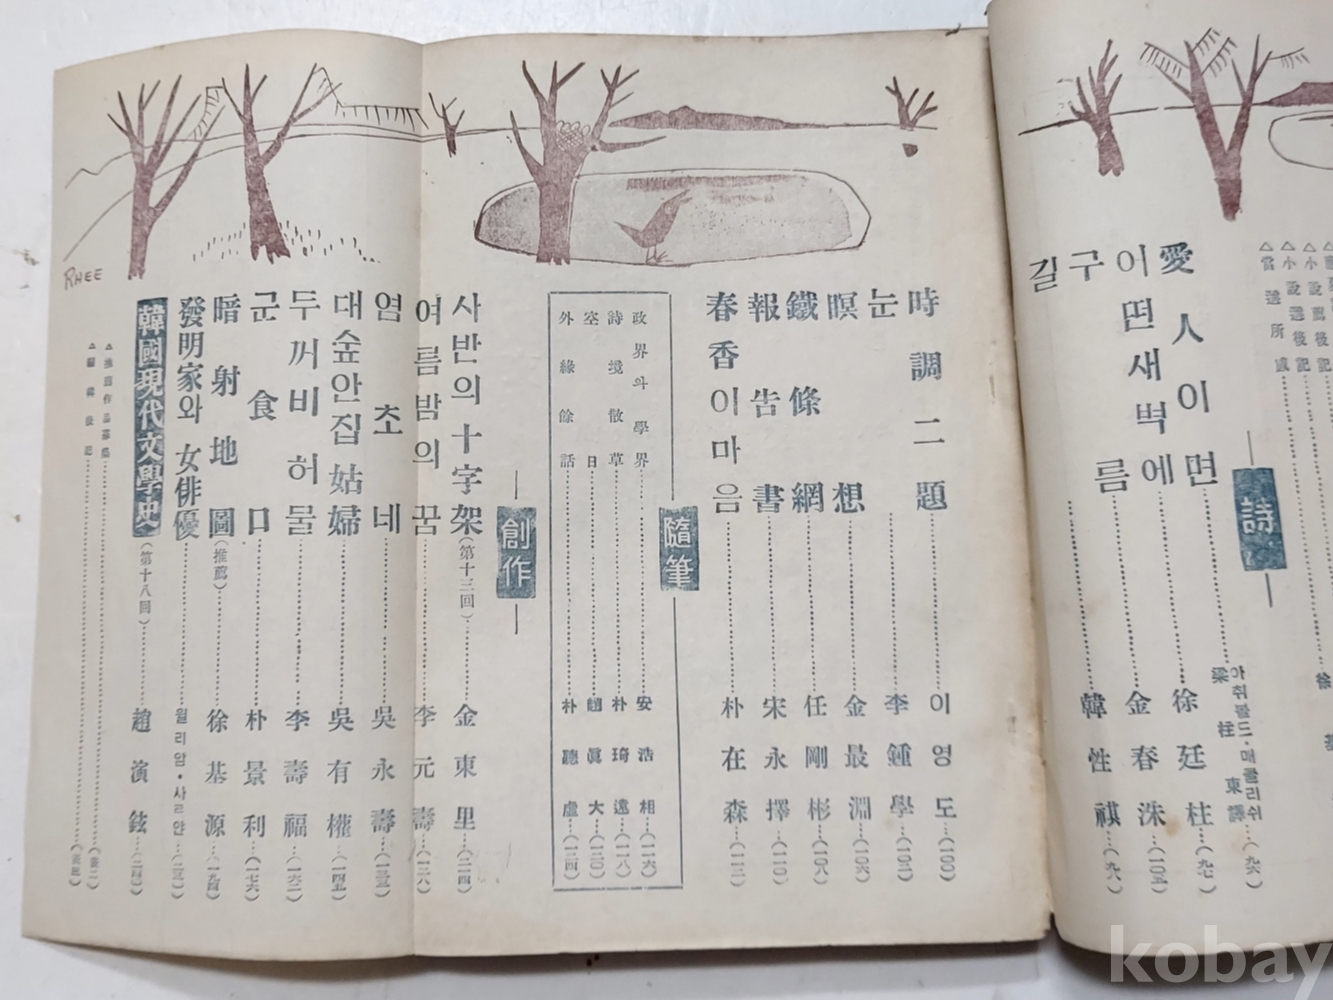 △當選所感
△小說選後記
詩
愛人이면
아취볼드·매클리쉬
梁柱東譯…(九六)
이떤새벽에……徐廷柱…(九七)
구름……金春洙…(一〇五)
길……韓性祺…(九八)
時調二題……이영도…(一〇〇)
눈……李鍾學…(一〇二)
暝想……金最淵…(一〇六)
鐵條網……任剛彬…(一〇八)
報告書……宋永擇…(一一〇)
春香이마음……朴在森…(一一二)
隨筆
政界와學界……安浩相…(一一六)
詩境散草……朴琦遠…(一一八)
空日……趙眞大…(一二〇)
外綠餘話……朴聽虛…(一二四)
創作
사반의十字架(第十三回)……金東里…(二二四)
여름밤의꿈……李元壽…(一二八)
염초네……吳永壽…(一三五)
대숲안집姑婦……吳有權…(一四五)
두꺼비허물……李壽福…(一六二)
군食口……朴景利…(一七六)
暗射地圖(推薦)……徐基源…(一九四)
發明家와女俳優……윌리암·사로얀
韓國現代文學史(第十八回)……趙演鉉…(二四〇)
RHEE
kobay